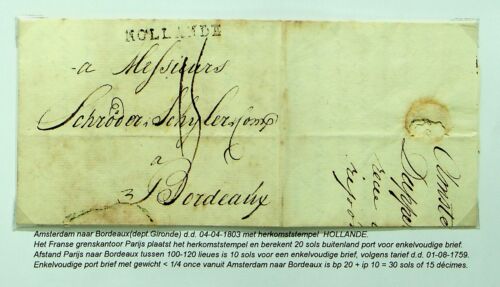 HOLLANDE
a Messieurs
Schröder, Schyler, Comp
a
Bordeaux
Amsterdam naar Bordeaux(dept.Gironde) d.d. 04-04-1803 met herkomststempel HOLLANDE.
Het Franse grenskantoor Parijs plaatst het herkomststempel en berekent 20 sols buitenland port voor enkelvoudige brief.
Afstand Parijs naar Bordeaux tussen 100-120 lieues is 10 sols voor een enkelvoudige brief, volgens tarief d.d. 01-08-1759.
Enkelvoudige port brief met gewicht < 1/4 once vanuit Amsterdam naar Bordeaux is bp 20 + ip 10 = 30 sols of 15 décimes.